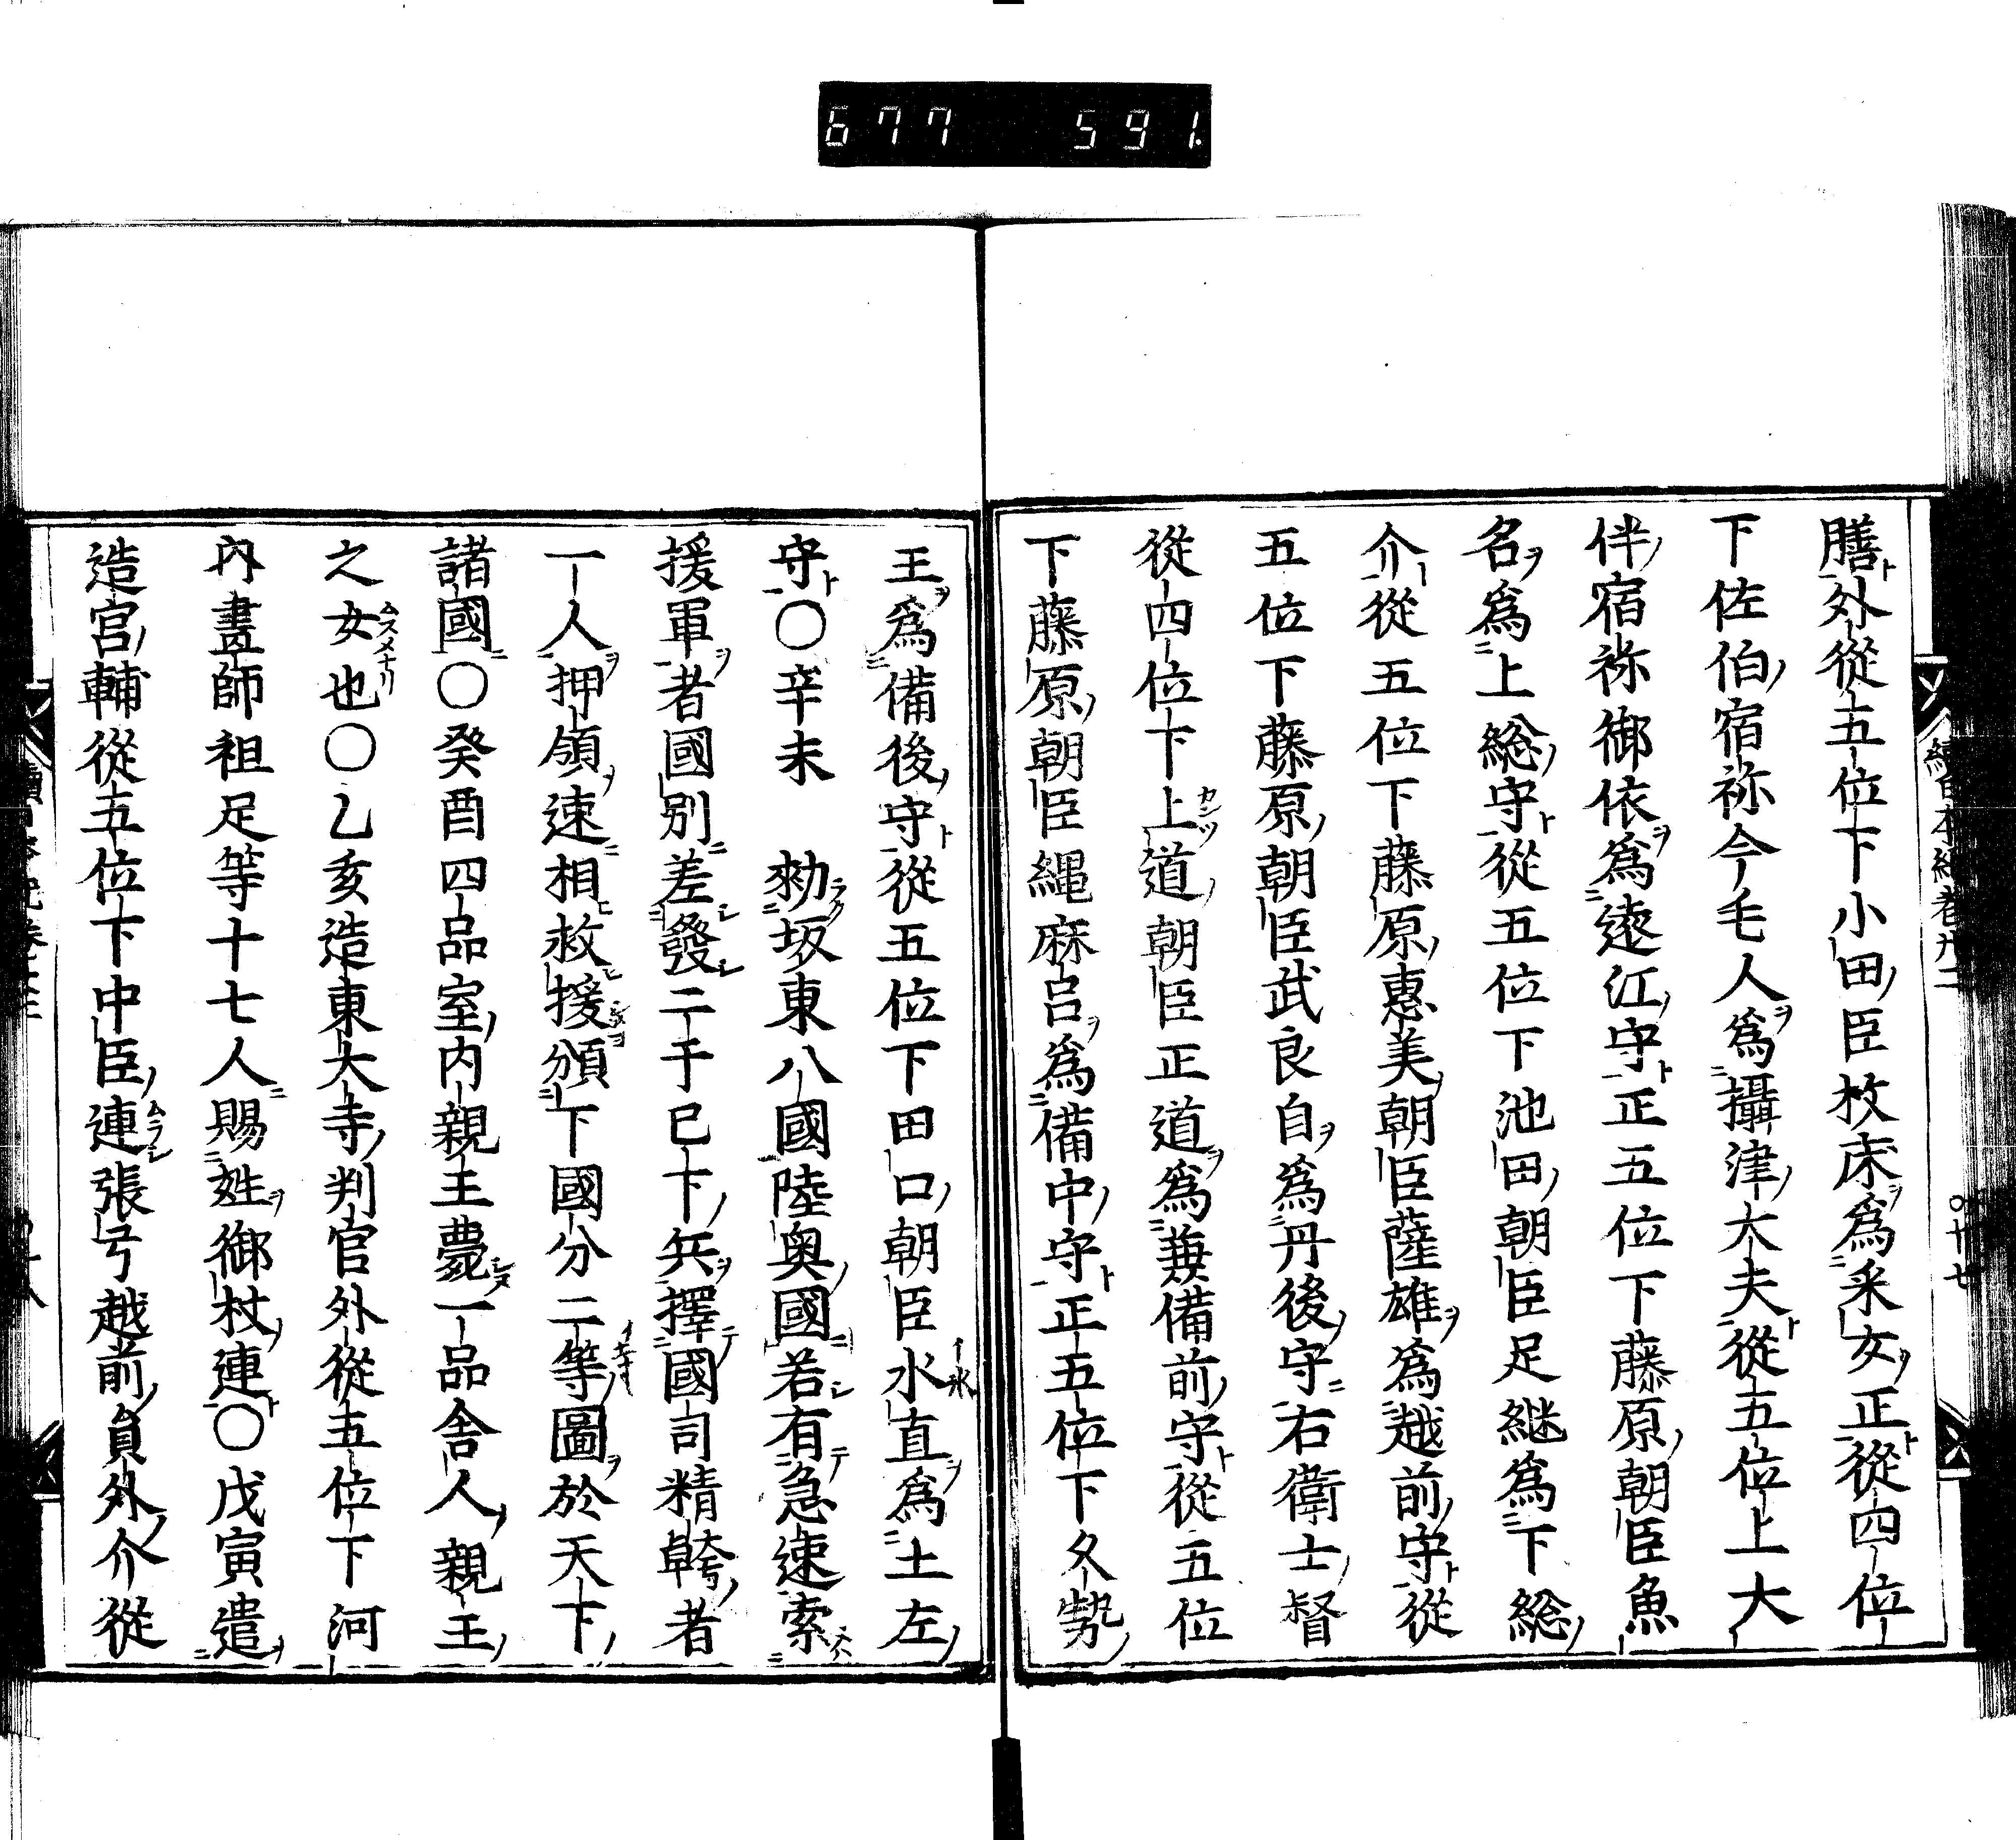 677 591.
膳外從五位下小田臣枚床為采女正從四位
下佐伯宿祢今毛人為攝津大夫從五位上大
伴宿祢御依為遠江守正五位下藤原朝臣魚
名為上総守從五位下池田朝臣足継為下総
介從五位下藤原惠美朝臣薩雄為越前守從
五位下藤原朝臣武良自為丹後守右衛士督
從四位下上道朝臣正道為兼備前守從五位
下藤原朝臣縄麻呂為備中守正五位下久勢
王為備後守從五位下田口朝臣水直為土左
守〇辛未 勑坂東八國陸奥國若有急速索
援軍者國別差發二千已下兵擇國司精幹者
一人押領速相救援頒下國分二等圖於天下
諸國〇癸酉四品室内親王薨一品舎人親王
之女也〇乙亥造東大寺判官外從五位下河
内畫師祖足等十七人賜姓御杖連〇戊寅遣
造宮輔從五位下中臣連張弓越前員外介從